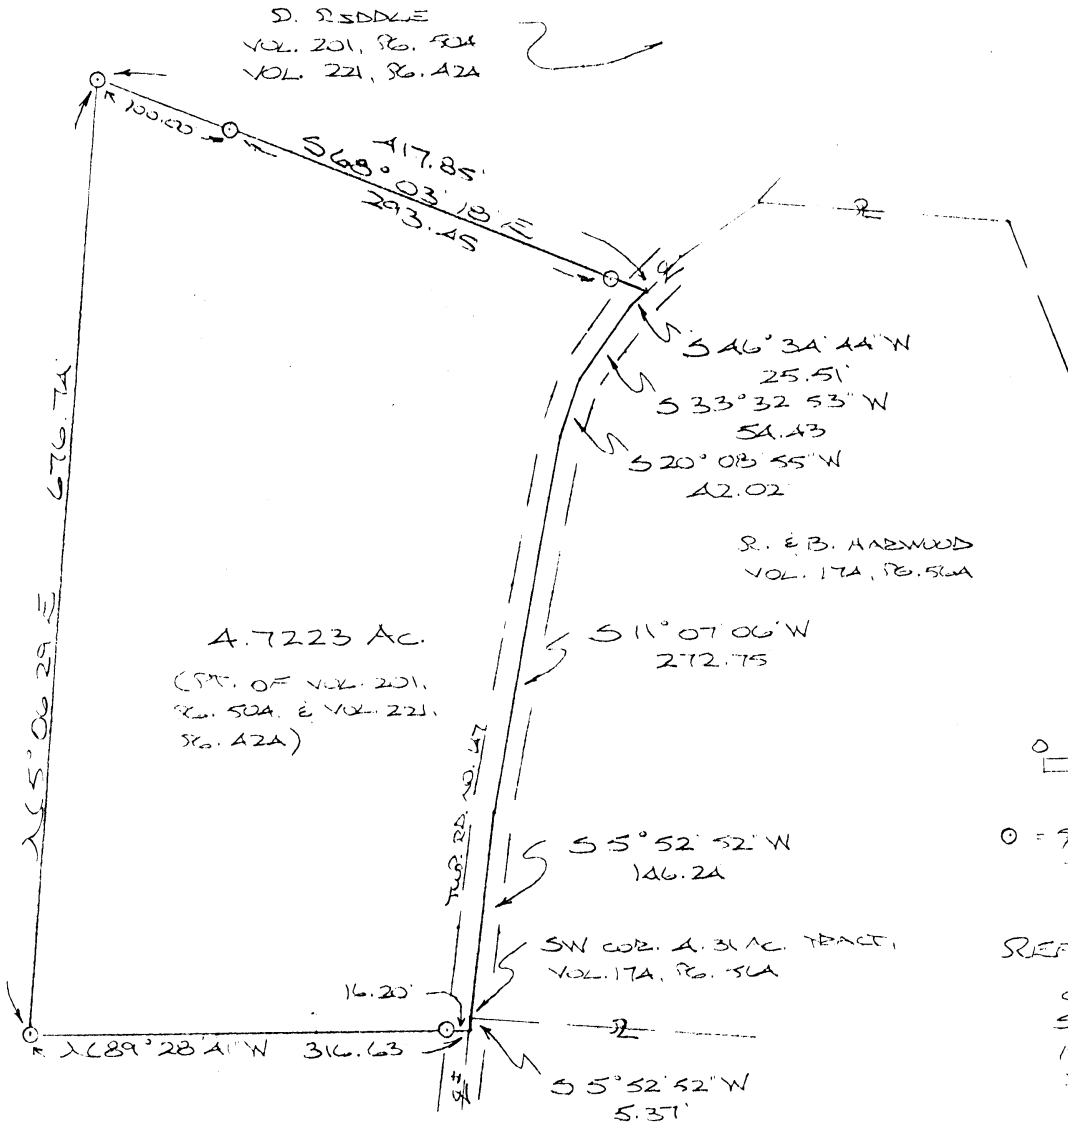 VOL. 201, PG. 504
VOL. 221, PG. 424
100.00'
417.85'
S 68° 03' 18" E
293.45
℄
PL
S 46° 34' 44" W
25.51'
S 33° 32' 53" W
54.43
S 20° 08' 55" W
42.02'
R. & B. HARWOOD
VOL. 174, PG. 564
676.74'
N 5° 06' 29" E
4.7223 AC.
(PT. OF VOL. 201,
PG. 504, & VOL. 221,
PG. 424)
S 11° 07' 06" W
272.75
TWP. RD. NO. 147
S 5° 52' 52" W
146.24
SW COR. 4.31 AC. TRACT,
VOL. 174, PG. 564
16.20'
N 89° 28' 41" W 316.63
PL
S 5° 52' 52" W
5.37'
REF